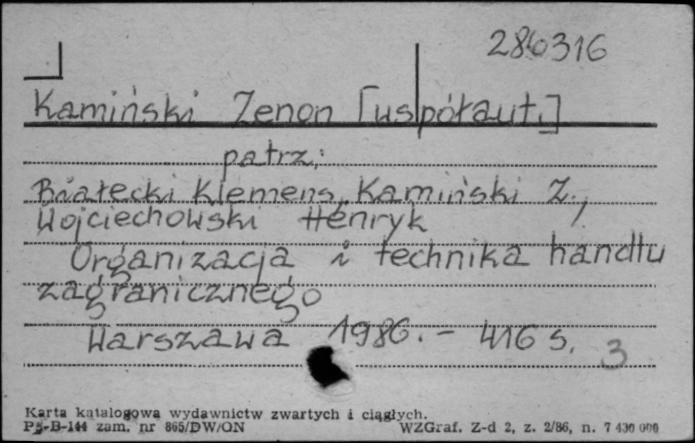 286316
Kamiński Zenon [współaut.]
patrz:
Białecki Klemens, Kamiński Z.,
Wojciechowski Henryk
Organizacja i technika handlu
zagranicznego
Warszawa 1986. – 416 s. 3
Karta katalogowa wydawnictw zwartych i ciągłych.
Ps-B-144 zam. nr 865/DW/ON WZGraf. Z-d 2, z. 2/86, n. 7 430 000